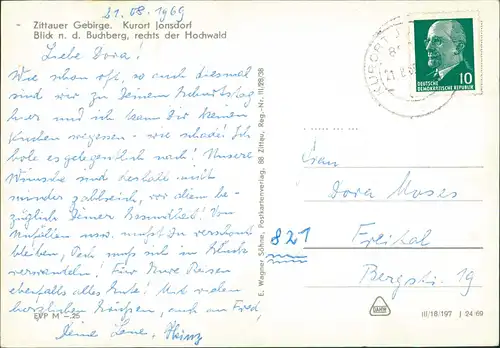 21.08.1969
Zittauer Gebirge. Kurort Jonsdorf
Blick n. d. Buchberg, rechts der Hochwald
Liebe Dora!
Wie schon oft, so auch diesmal
sind wir zu Deinem Geburtstag
hier und ich kann Dir keinen
Kuchen wie schade! Ich
hole es gelegentlich nach! Unsere
Wünsche sind deshalb nicht
minder zahlreich, vor allem be-
züglich Deiner Gesundheit! Von
Unfällen usw. mußt Du verschont
bleiben, Pech muß sich in Glück
verwandeln! Für Eure Reisen
ebenfalls alles Gute! Mit vielen
herzlichen Grüßen, auch an Fred,
Deine Lene, Heinz
EVP M –.25
E. Wagner Söhne, Postkartenverlag, 88 Zittau, Reg.-Nr. III/28/38
KURORT J
10
DEUTSCHE
DEMOKRATISCHE REPUBLIK
Frau
Dora Moses
821
Freital
Bergstr. 19
III/18/197 J 24/69